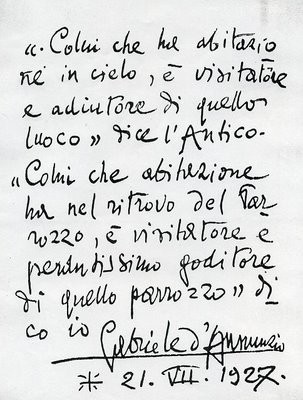 «. Colui che ha abitazio
ne in cielo, è visitatore
e adiutore di quello
luoco» dice l'Antico.
«Colui che abitazione
ha nel ritrovo del Par
rozzo, è visitatore e
perantissimo goditore
di quello parrozzo» di
co io
Gabriele d'Annunzio
* 21. VII. 1927.